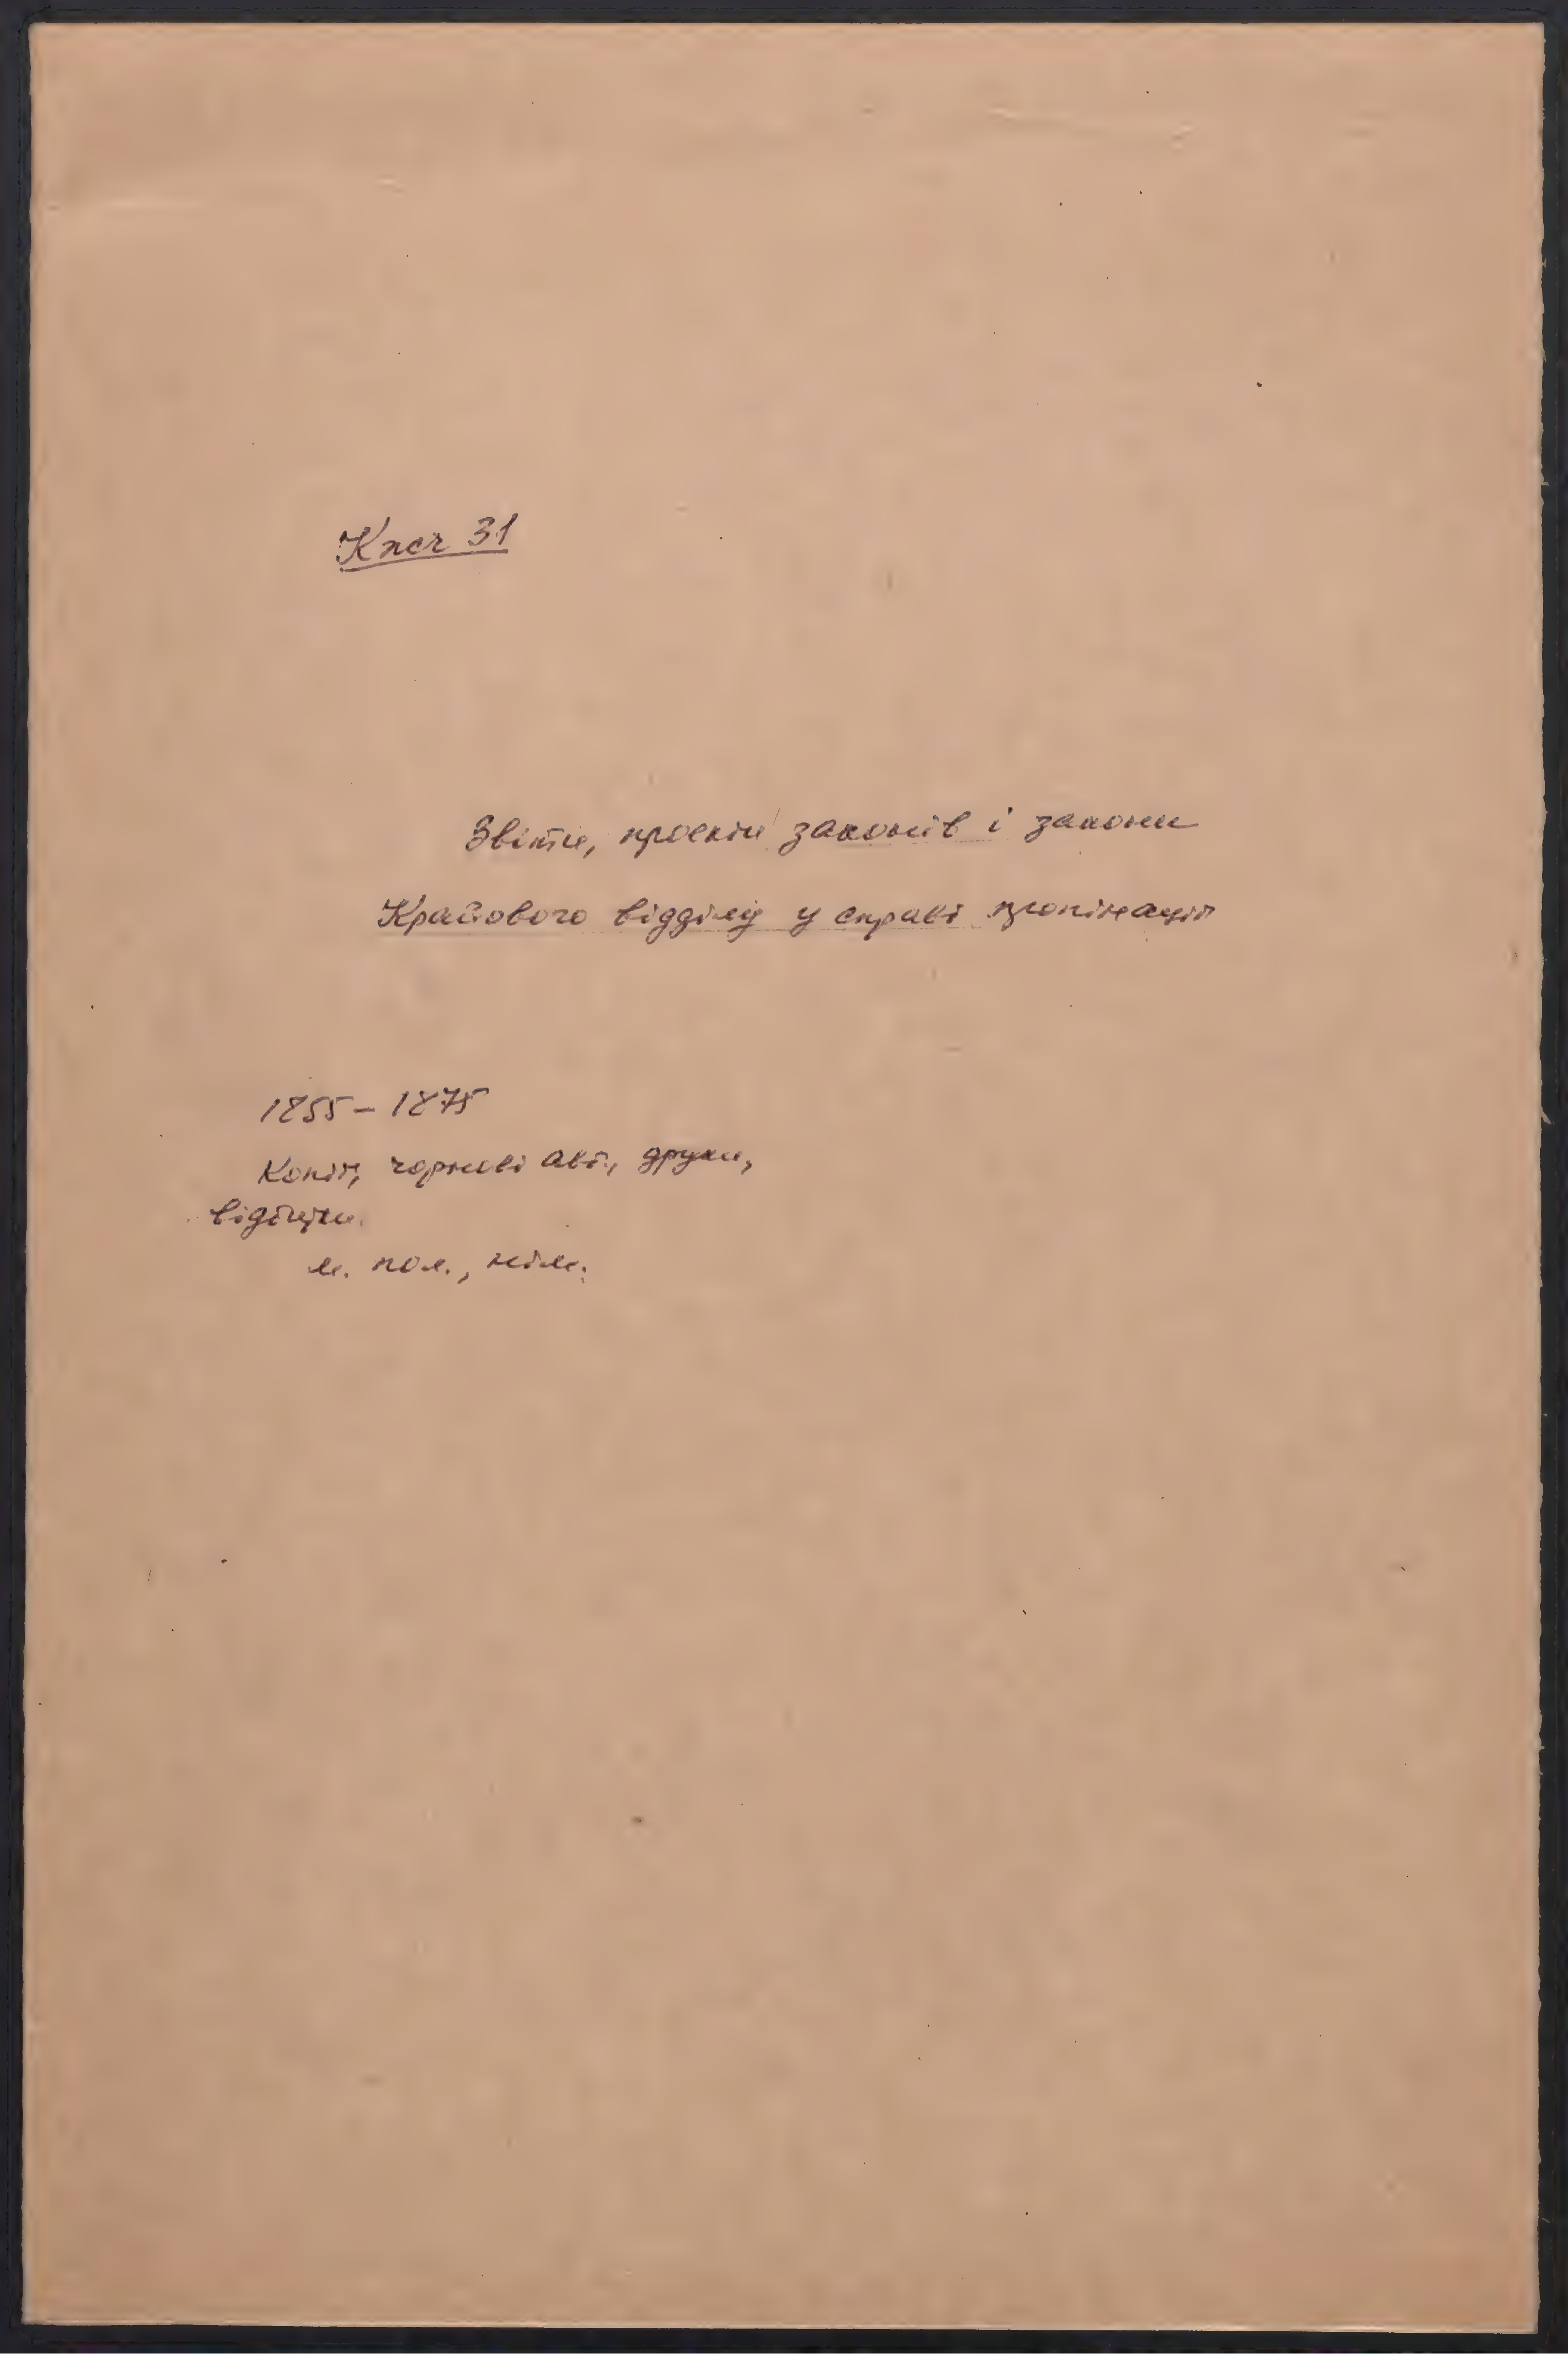 Кпсч 31
Звіти, проекти законів і закони
Крайового відділу у справі пропінації
1855 – 1875
Копії, чорнові авт., друки,
відбитки.
м. пол., нім.